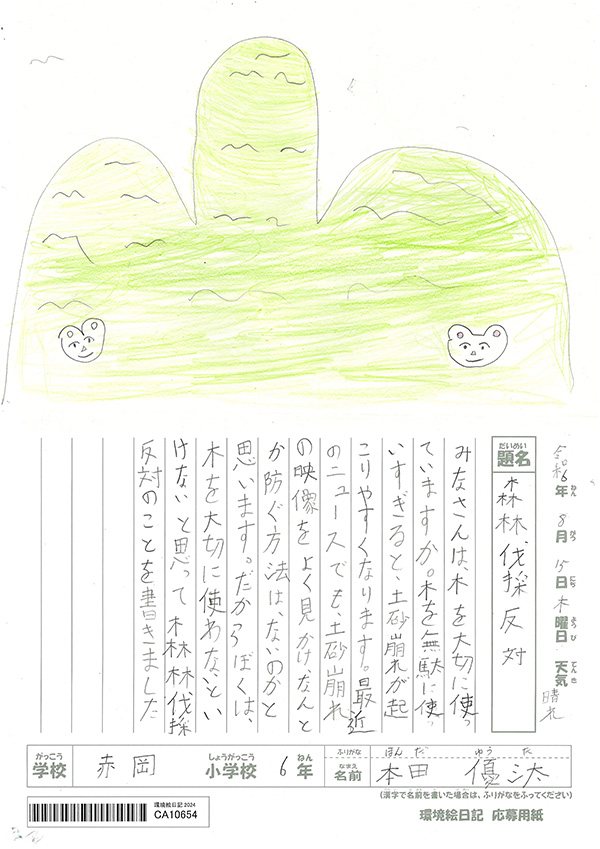 令和6年 8月 15日 木曜日 天気 晴れ
ねん がつ にち ようび てんき
だいめい
題名 森林伐採反対
みなさんは、木を大切に使っ
ていますか。木を無駄に使っ
いすぎると、土砂崩れが起
こりやすくなります。最近
のニュースでも、土砂崩れ
の映像をよく見かけ、なんと
か防ぐ方法は、ないのかと
思います。だからぼくは、
木を大切に使わないとい
けないと思って森林伐採
反対のことを書きました
がっこう しょうがっこう ねん ふりがな ほんだ ゆうた
学校 赤岡 小学校 6年 なまえ 名前 本田 優汰
(漢字で名前を書いた場合は、ふりがなをふってください)
環境絵日記 2024
CA10654
環境絵日記 応募用紙